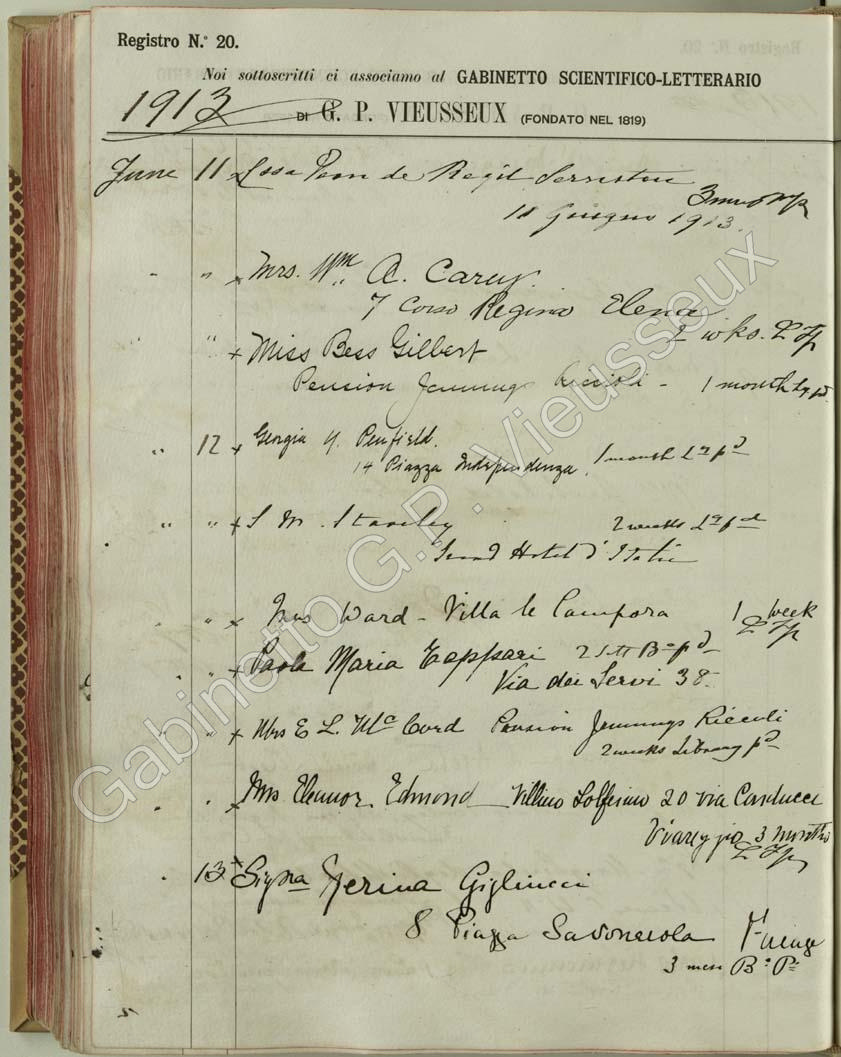 Registro N.° 20.
Noi sottoscritti ci associamo al GABINETTO SCIENTIFICO-LETTERARIO
1913
DI G. P. VIEUSSEUX (FONDATO NEL 1819)
June 11 de
11 Giugno 1913.
" " x Mrs. Wm. A. Carey.
7 Corso Regina Elena
2 wks.
" " x Miss Bess Gilbert
Pension Jennings Riccioli - 1 month
" 12 x Georgia Penfield.
14 Piazza Independenza, 1 month
" " x S M. Staveley 2 weeks
Grand Hotel d'Italie
" " x Mrs Ward - Villa le Campora 1 week
" " x Paola Maria 2
Via dei Servi 38-
" " x Mrs E L. Mc Cord Pension Jennings Riccioli
2 weeks Library pd
" " x Mrs Eleanor. Edmond Villino Solferino 20 via Carducci
Viareggio 3 months
" 13 x Signra Nerina Gigliucci
8 Piazza Savonarola Firenze
3 mesi
Gabinetto G.P. Vieusseux